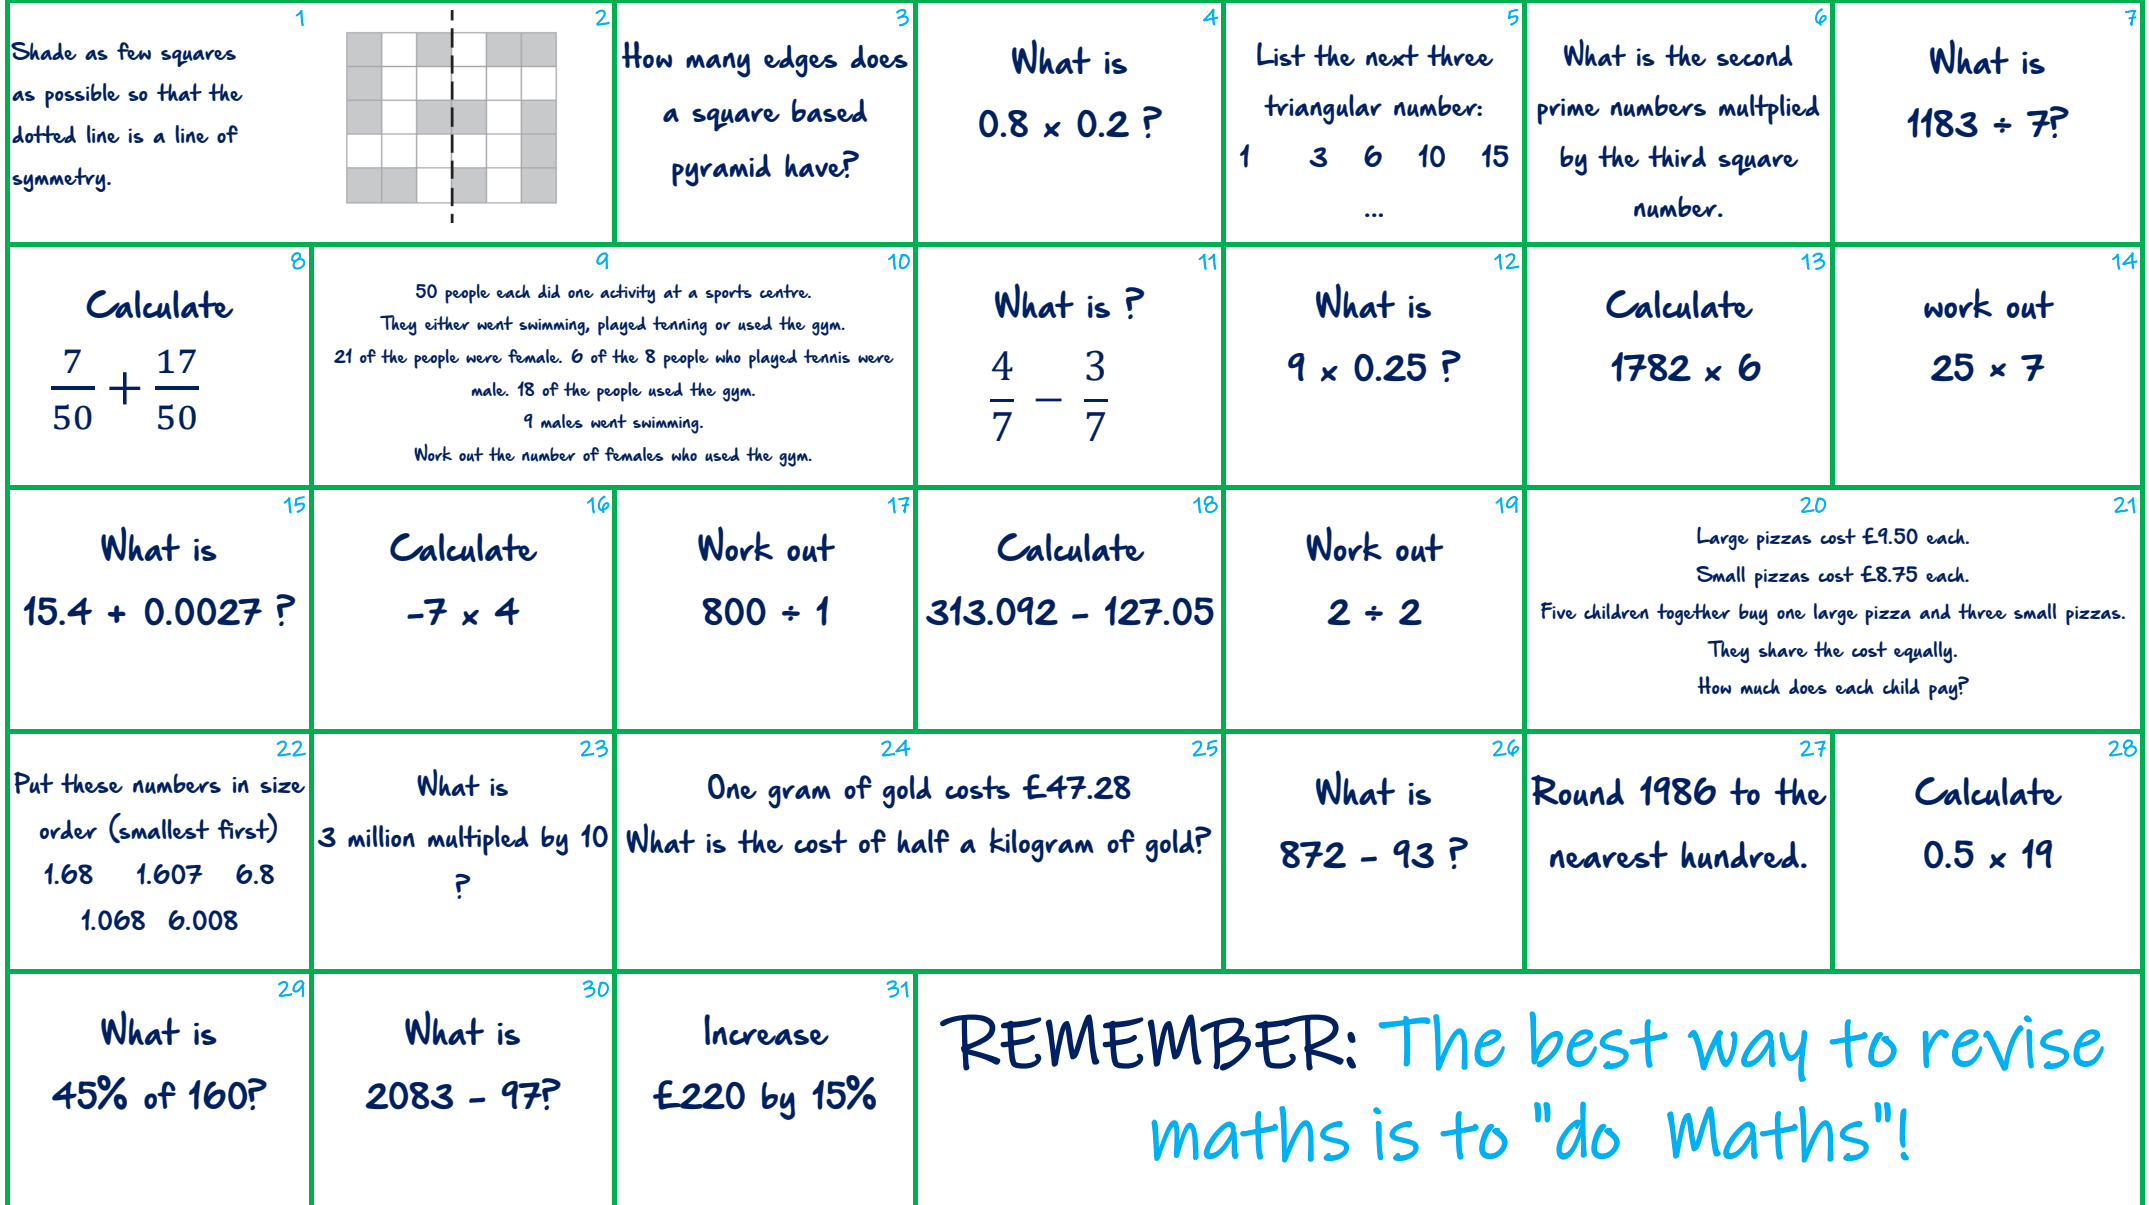 1
Shade as few squares
as possible so that the
dotted line is a line of
symmetry.
2
3
How many edges does
a square based
pyramid have?
4
What is
0.8 x 0.2 ?
5
List the next three
triangular number:
1 3 6 10 15
...
6
What is the second
prime numbers multplied
by the third square
number.
7
What is
1183 ÷ 7?
8
Calculate
7/50 + 17/50
9 10
50 people each did one activity at a sports centre.
They either went swimming, played tenning or used the gym.
21 of the people were female. 6 of the 8 people who played tennis were
male. 18 of the people used the gym.
9 males went swimming.
Work out the number of females who used the gym.
11
What is ?
4/7 − 3/7
12
What is
9 x 0.25 ?
13
Calculate
1782 x 6
14
work out
25 × 7
15
What is
15.4 + 0.0027 ?
16
Calculate
-7 x 4
17
Work out
800 ÷ 1
18
Calculate
313.092 - 127.05
19
Work out
2 ÷ 2
20 21
Large pizzas cost £9.50 each.
Small pizzas cost £8.75 each.
Five children together buy one large pizza and three small pizzas.
They share the cost equally.
How much does each child pay?
22
Put these numbers in size
order (smallest first)
1.68 1.607 6.8
1.068 6.008
23
What is
3 million multipled by 10
?
24 25
One gram of gold costs £47.28
What is the cost of half a kilogram of gold?
26
What is
872 - 93 ?
27
Round 1986 to the
nearest hundred.
28
Calculate
0.5 x 19
29
What is
45% of 160?
30
What is
2083 - 97?
31
Increase
£220 by 15%
REMEMBER: The best way to revise
maths is to "do Maths"!